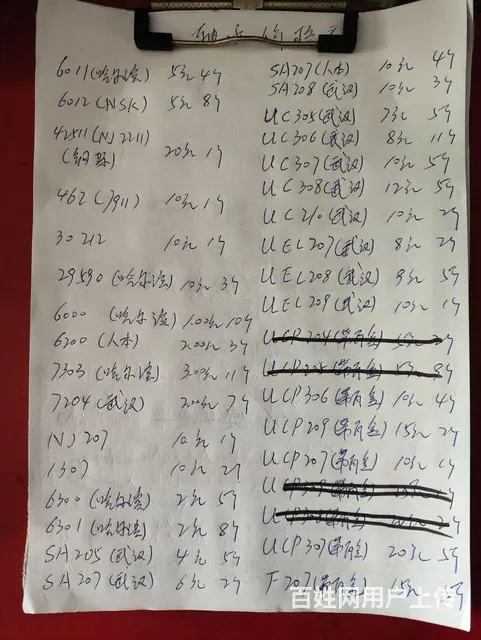 轴承价格表
6011(哈尔滨) 5元 4个
6012(NSK) 5元 8个
42511(NJ2211)
(铜珠) 20元 1个
462(7911) 10元 1个
30212 10元 1个
29590(哈尔滨) 10元 3个
6000(哈尔滨) 1.00元 10个
6200(人本) 2.00元 3个
7303(哈尔滨) 3.00元 11个
7204(武汉) 2.00元 7个
NJ207 10元 1个
1307 10元 2个
6300(哈尔滨) 2元 5个
6301(哈尔滨) 2元 8个
SA205(武汉) 4元 5个
SA207(武汉) 6元 2个
SA207(人本) 10元 4个
SA208(武汉) 10元 3个
UC305(武汉) 7元 5个
UC306(武汉) 8元 11个
UC307(武汉) 10元 5个
UC308(武汉) 12元 5个
UC210(武汉) 10元 2个
UEL207(武汉) 8元 2个
UEL208(武汉) 9元 5个
UEL209(武汉) 10元 1个
UCP306(带瓦盒) 10元 4个
UCP209(带瓦盒) 15元 2个
UCP207(带瓦盒) 10元 1个
UCP307(带瓦盒) 20元 5个
F207(带瓦盒) 15元
百姓网用户上传